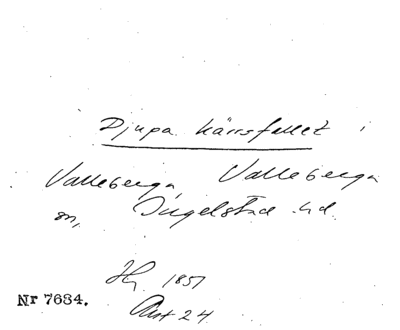 Djupa kärrsfallet i
Valleberga, Valleberga
sn, Ingelstad hd.
Hj 1851
Akt 24
Nr 7684.